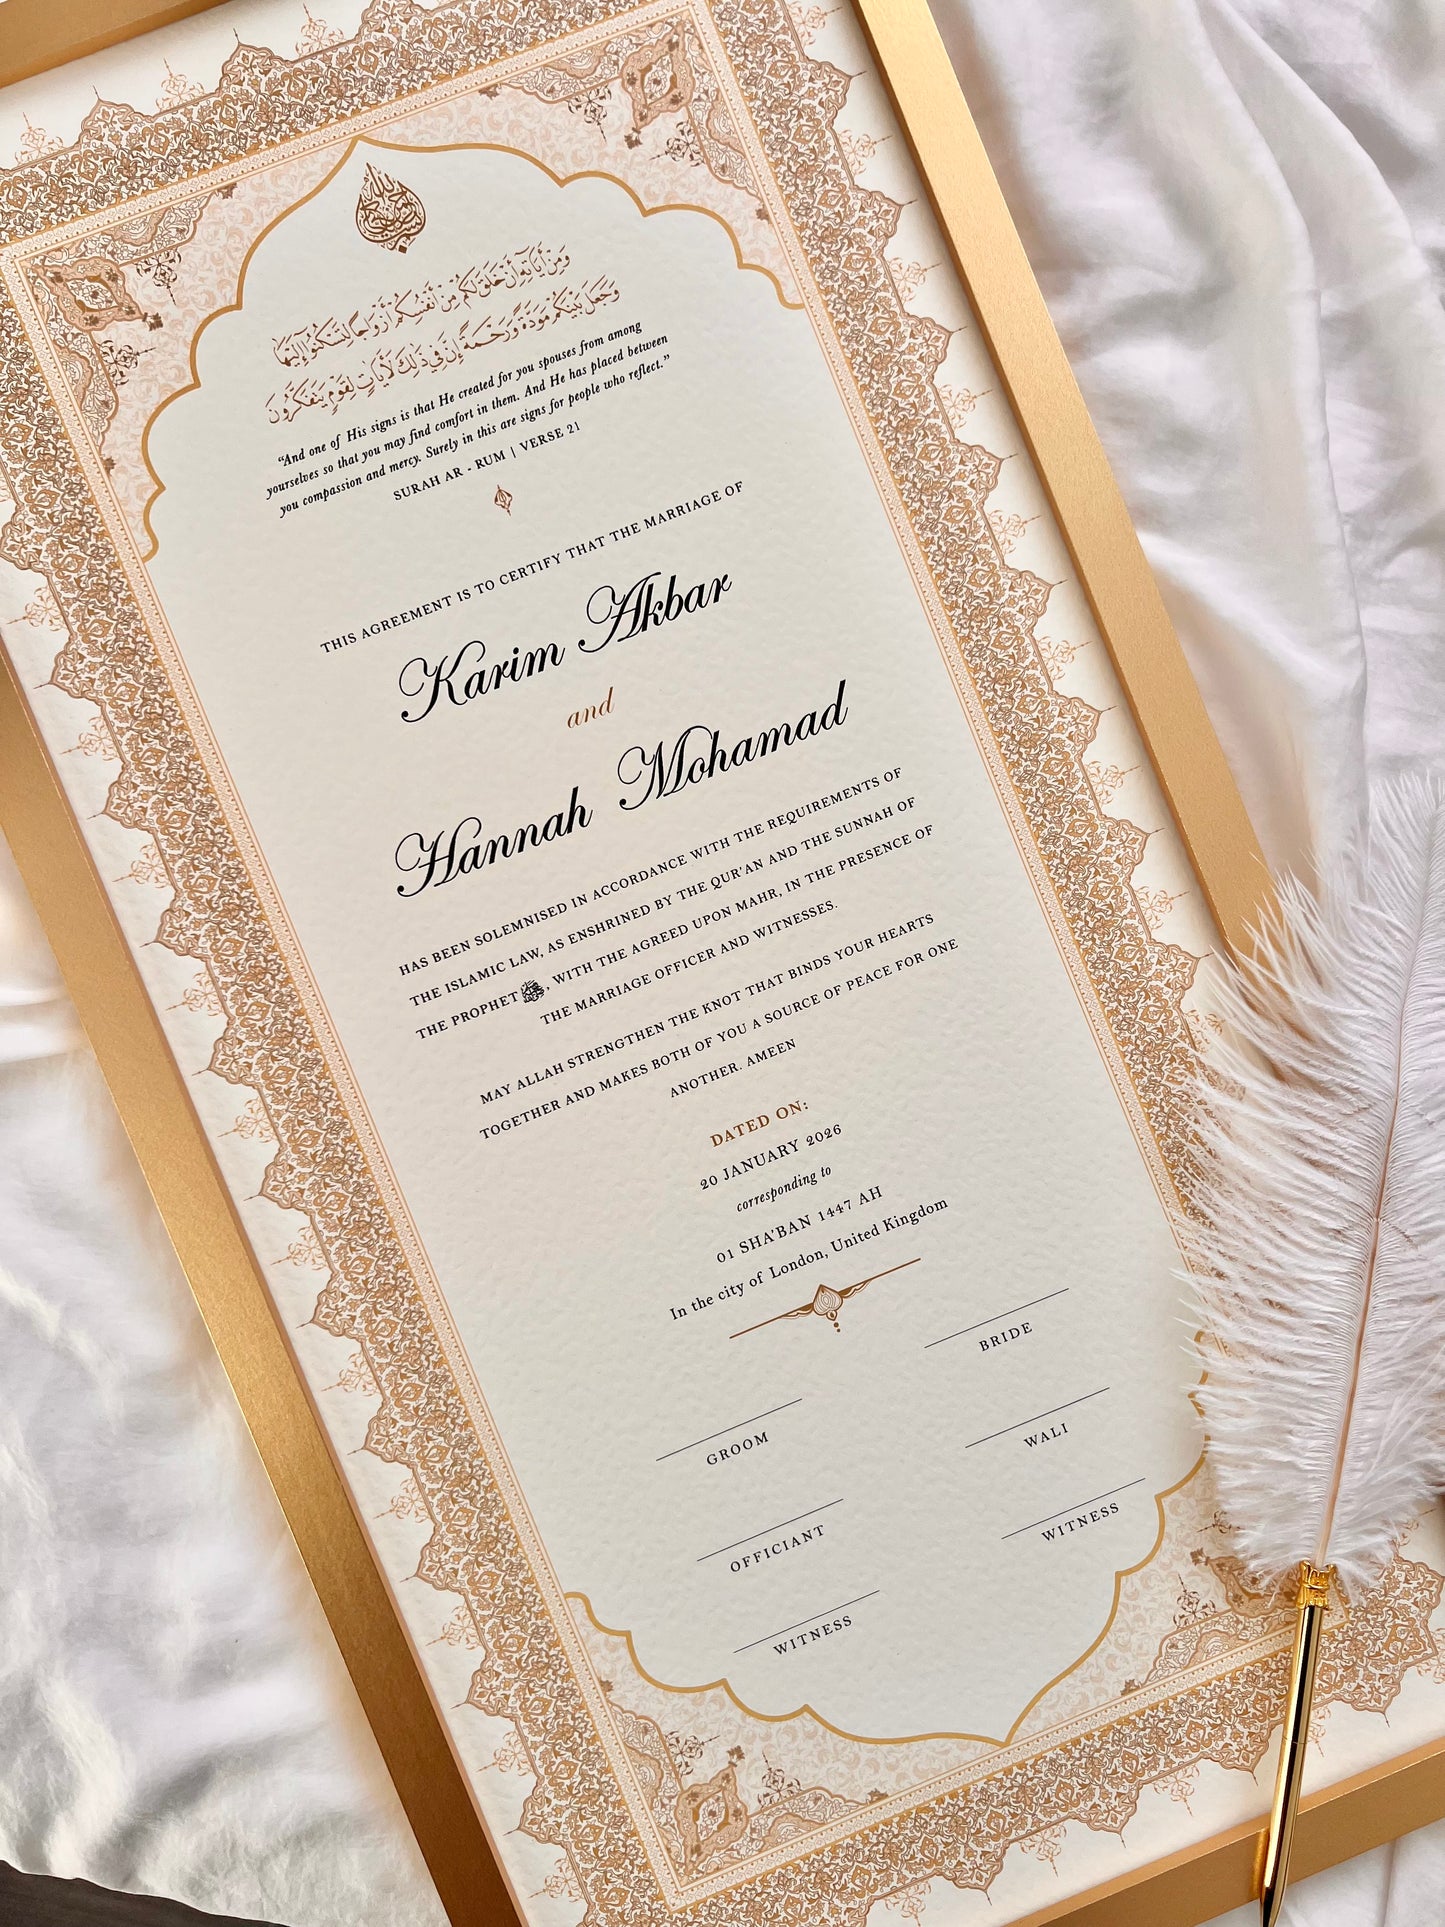 بسم الله الرحمن الرحيم
وَمِنْ أَيَاتِهِ أَنْ خَلَقَ لَكُم مِنْ أَنْفُسِكُمْ أَزْوَاجًا لِتَسْكُنُوا إِلَيْهَا
وَجَعَلَ بَيْنَكُم مَوَدَّةً وَرَحْمَةً إِنَّ فِي ذَلِكَ لَأَيَاتٍ لِقَوْمٍ يَتَفَكَّرُونَ
“And one of His signs is that He created for you spouses from among
yourselves so that you may find comfort in them. And He has placed between
you compassion and mercy. Surely in this are signs for people who reflect.”
SURAH AR - RUM | VERSE 21
THIS AGREEMENT IS TO CERTIFY THAT THE MARRIAGE OF
Karim Akbar
and
Hannah Mohamad
HAS BEEN SOLEMNISED IN ACCORDANCE WITH THE REQUIREMENTS OF
THE ISLAMIC LAW, AS ENSHRINED BY THE QUR'AN AND THE SUNNAH OF
THE PROPHET ﷺ, WITH THE AGREED UPON MAHR, IN THE PRESENCE OF
THE MARRIAGE OFFICER AND WITNESSES.
MAY ALLAH STRENGTHEN THE KNOT THAT BINDS YOUR HEARTS
TOGETHER AND MAKES BOTH OF YOU A SOURCE OF PEACE FOR ONE
ANOTHER. AMEEN
DATED ON:
20 JANUARY 2026
corresponding to
01 SHA'BAN 1447 AH
In the city of London, United Kingdom
BRIDE
GROOM
WALI
OFFICIANT
WITNESS
WITNESS